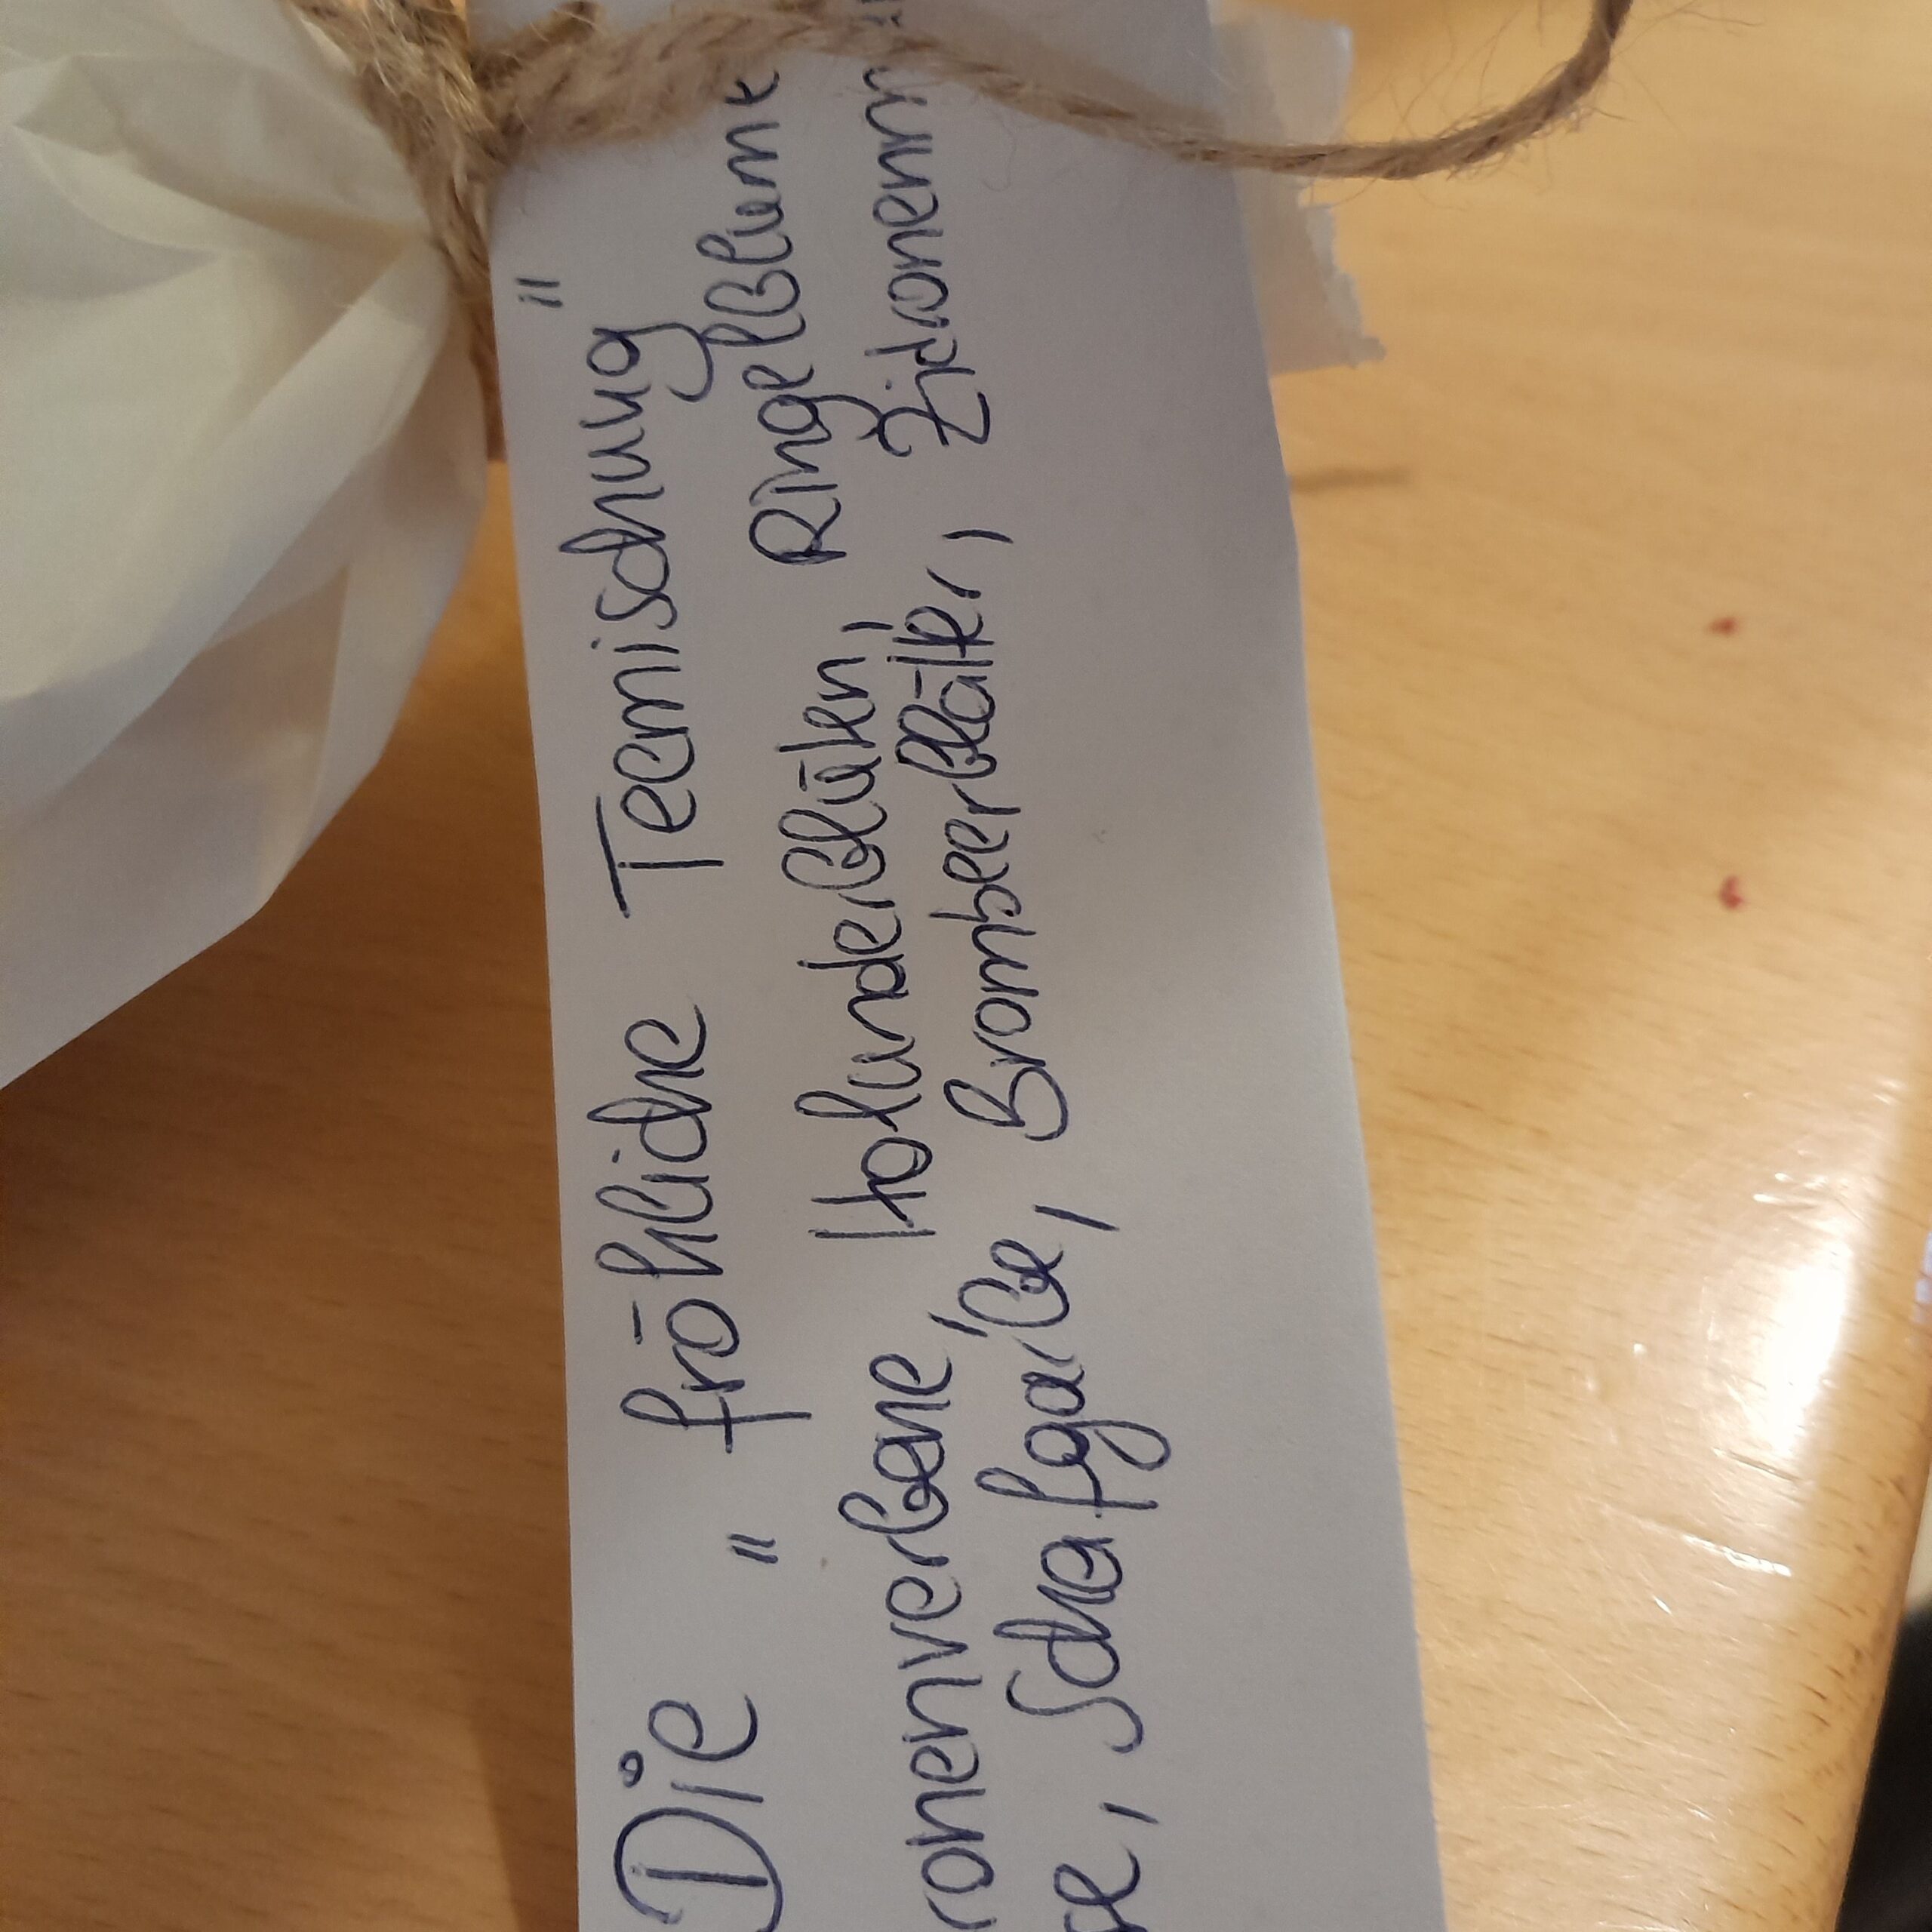 Die "fröhliche Teemischung"
ronenverbene, Holunderblüten, Ringelblume
Schafgarbe, Brombeerblätter, Zitronenm